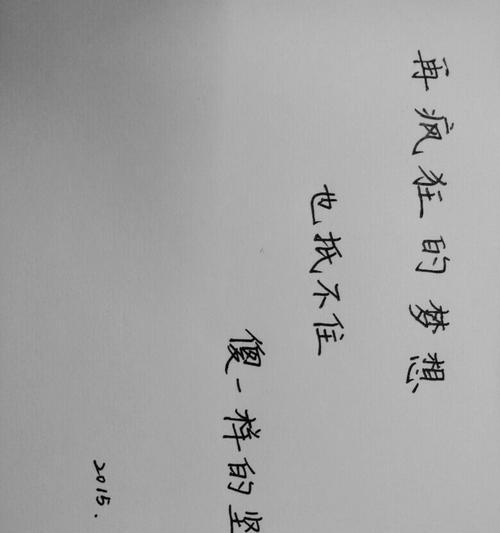 再疯狂的梦想
也抵不住
傻一样的坚
2015.